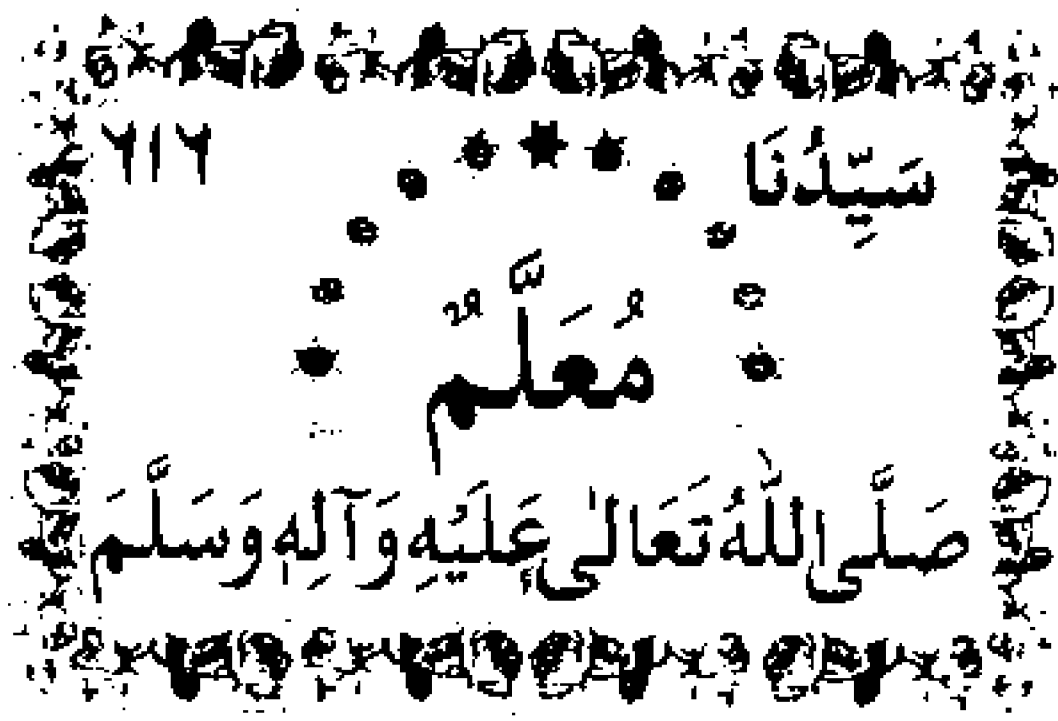 سَيِّدُنَا ٦١٦
مُعَلَّمٌ
صَلَّى اللّٰهُ تَعَالٰى عَلَيْهِ وَآلِهٖ وَسَلَّمَ